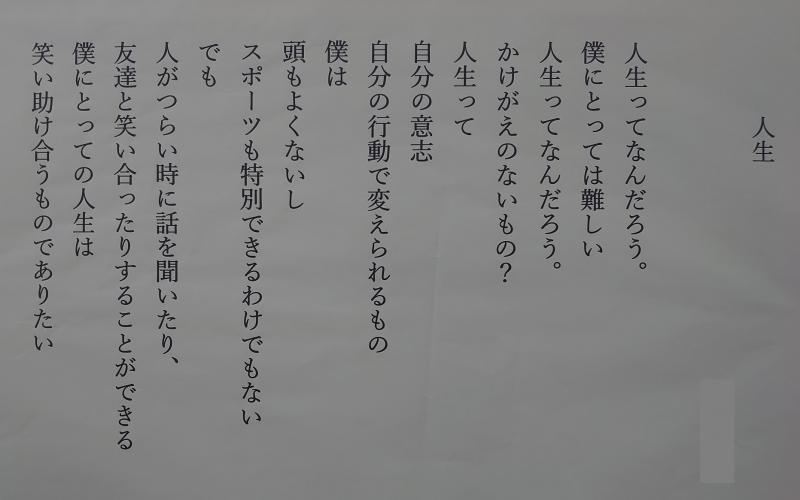 人生
人生ってなんだろう。
僕にとっては難しい
人生ってなんだろう。
かけがえのないもの？
人生って
自分の意志
自分の行動で変えられるもの
僕は
頭もよくないし
スポーツも特別できるわけでもない
でも
人がつらい時に話を聞いたり、
友達と笑い合ったりすることができる
僕にとっての人生は
笑い助け合うものでありたい